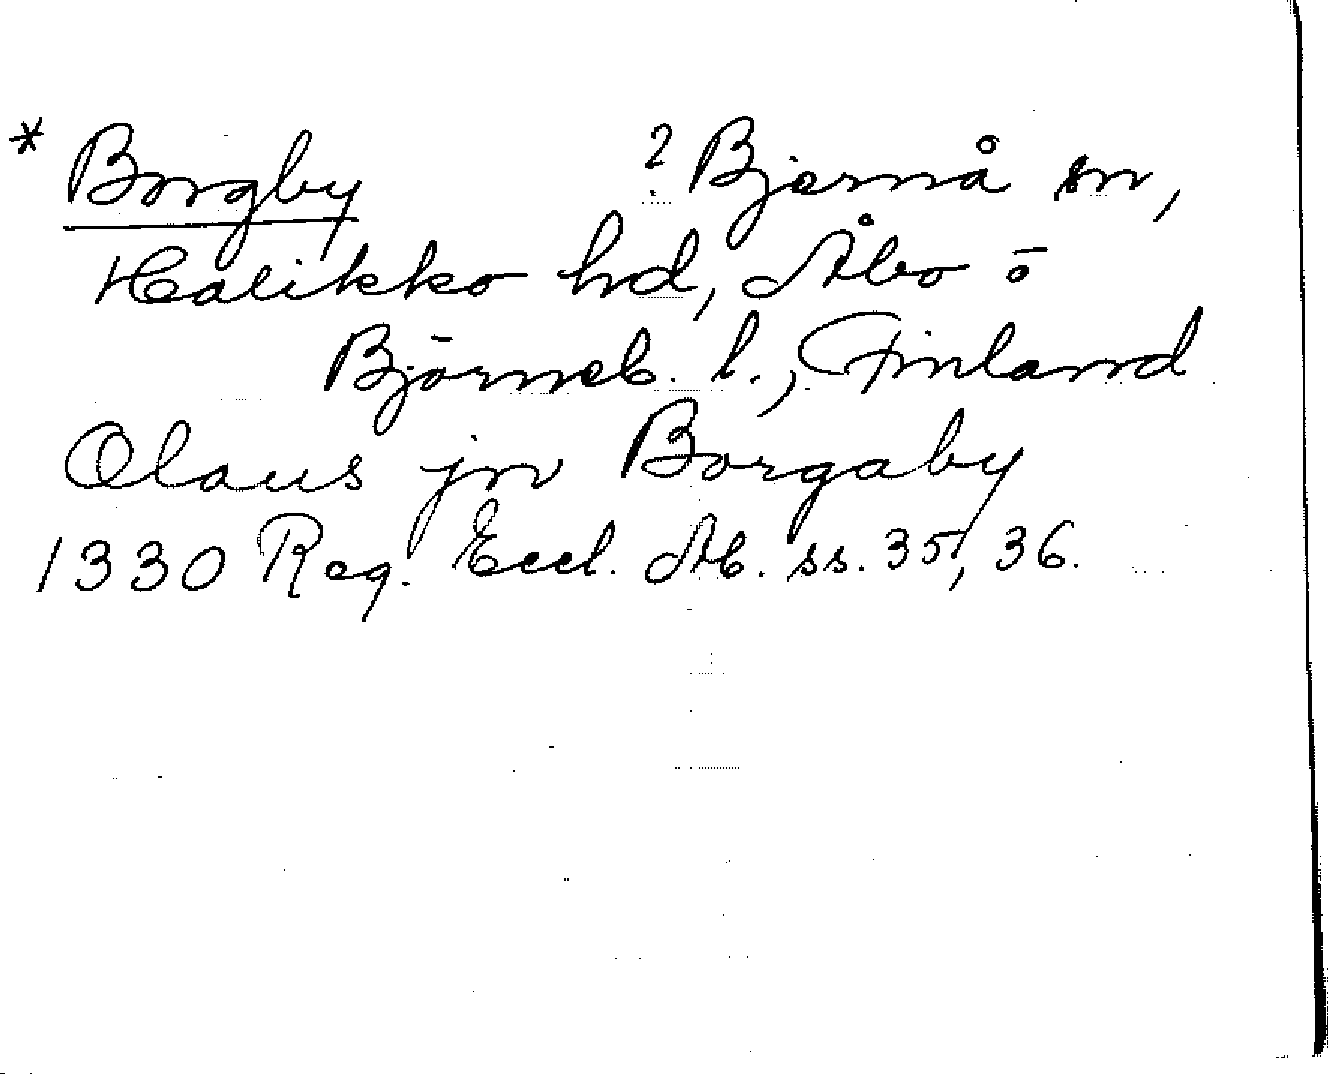 * Borgby ? Bjernå sn,
Halikko hd, Åbo ō
Björneb. l., Finland
Olaus jn Borgaby
1330 Reg. Eccl. Ab. ss. 35, 36.